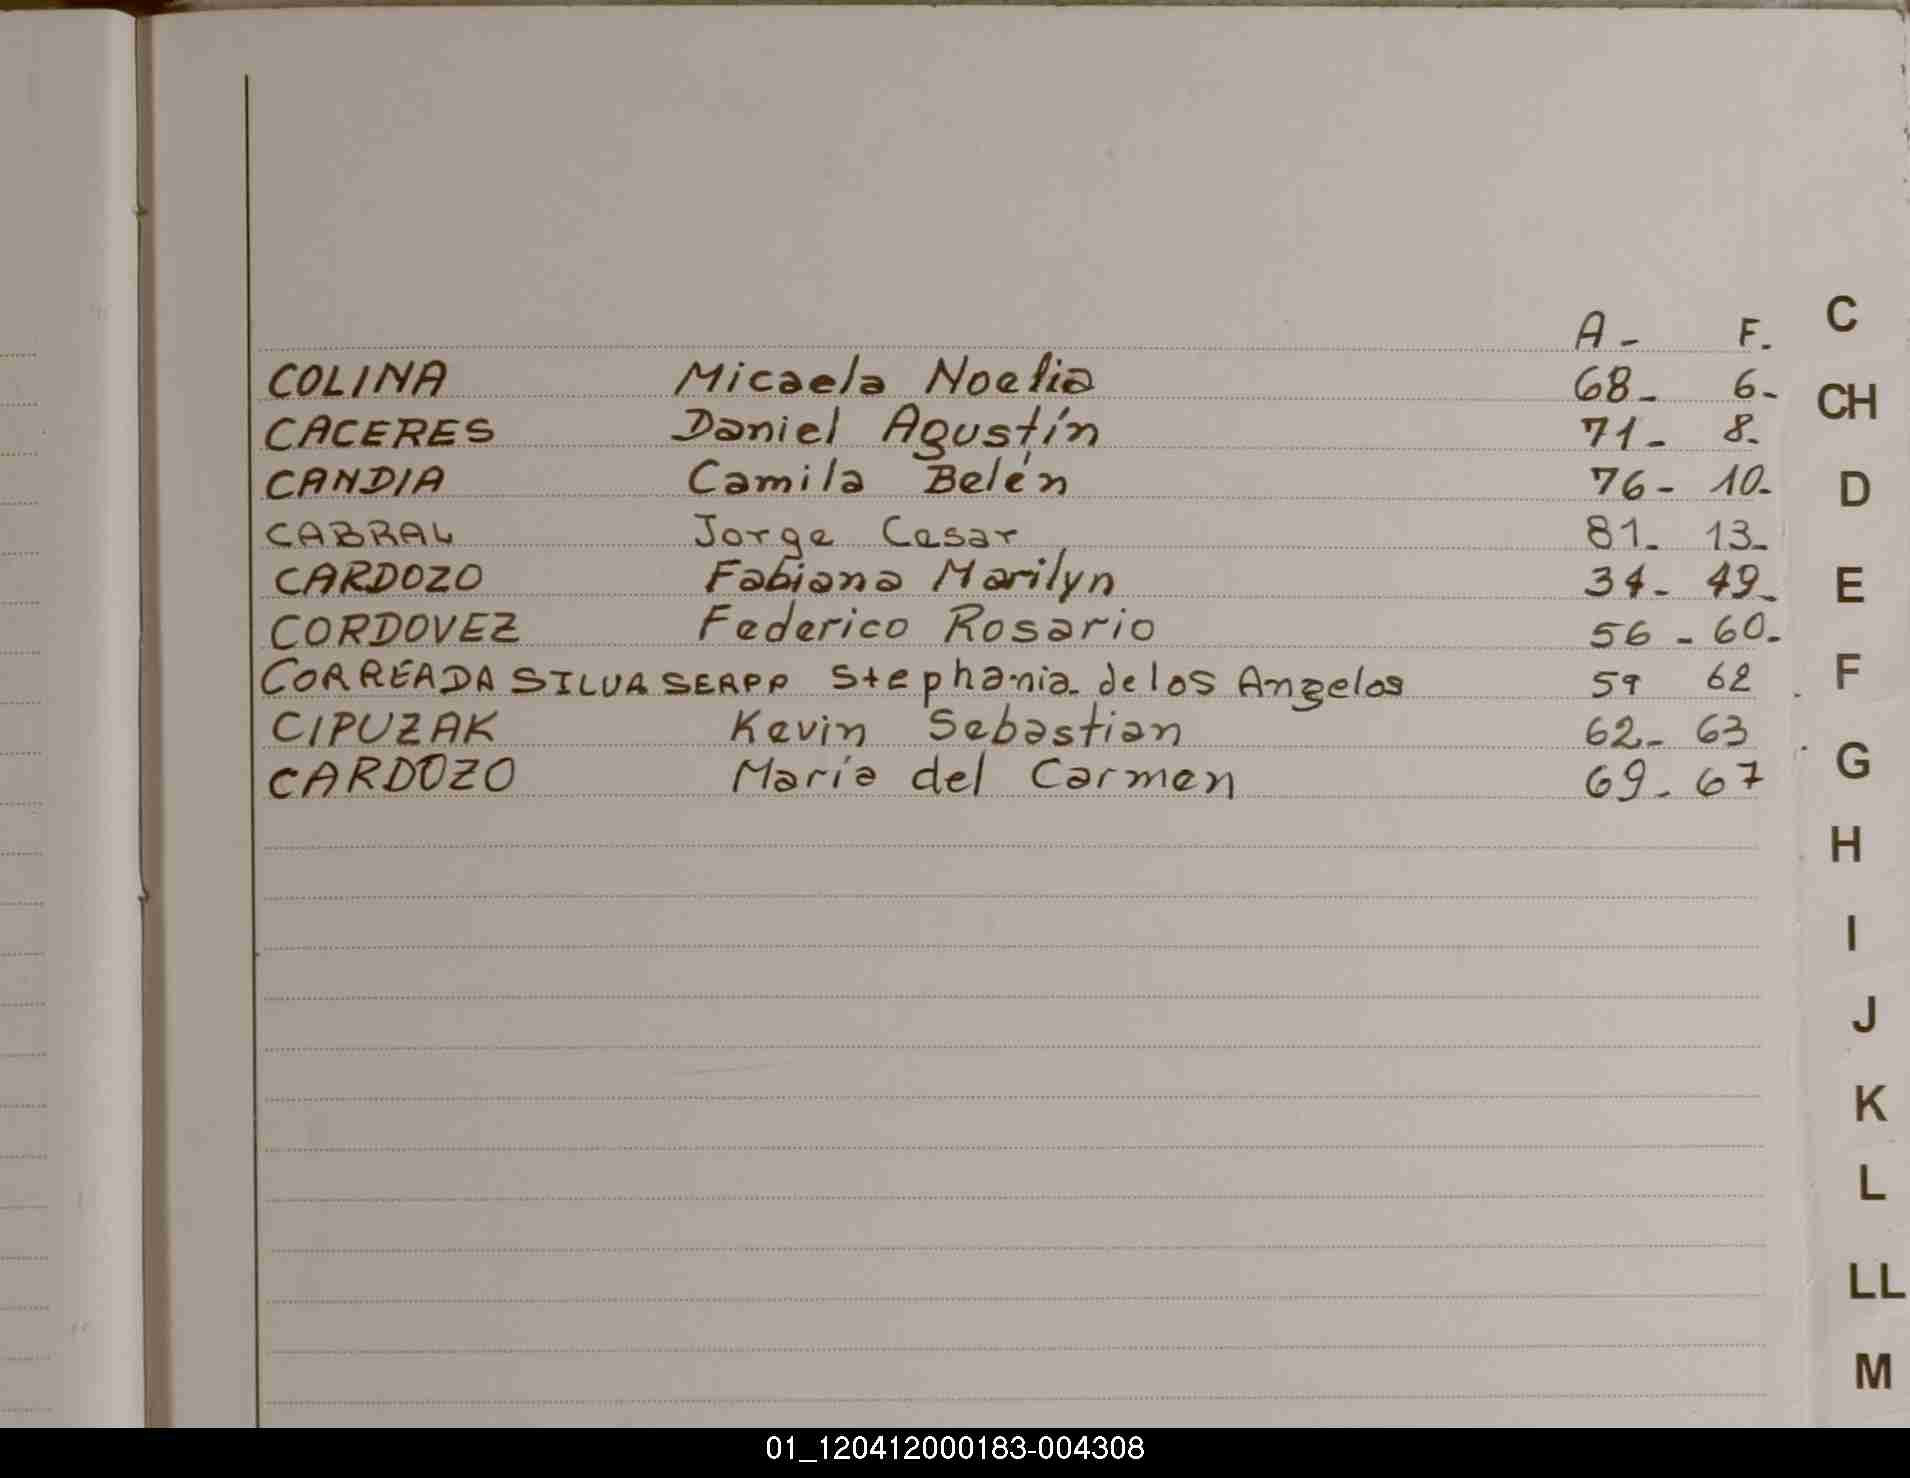 A - F. C
COLINA Micaela Noelia 68- 6-
CH
CACERES Daniel Agustín 71- 8-
CANDIA Camila Belén 76- 10-
D
CABRAL Jorge Cesar 81- 13-
CARDOZO Fabiana Marilyn 34- 49-
E
CORDOVEZ Federico Rosario 56-60-
CORREADA SILVA SEAPP Stephania de los Angelos 59 62
F
CIPUZAK Kevin Sebastian 62- 63
G
CARDOZO María del Carmen 69- 67
H
I
J
K
L
LL
M
01_120412000183-004308